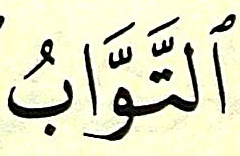 ٱلتَّوَّابُ